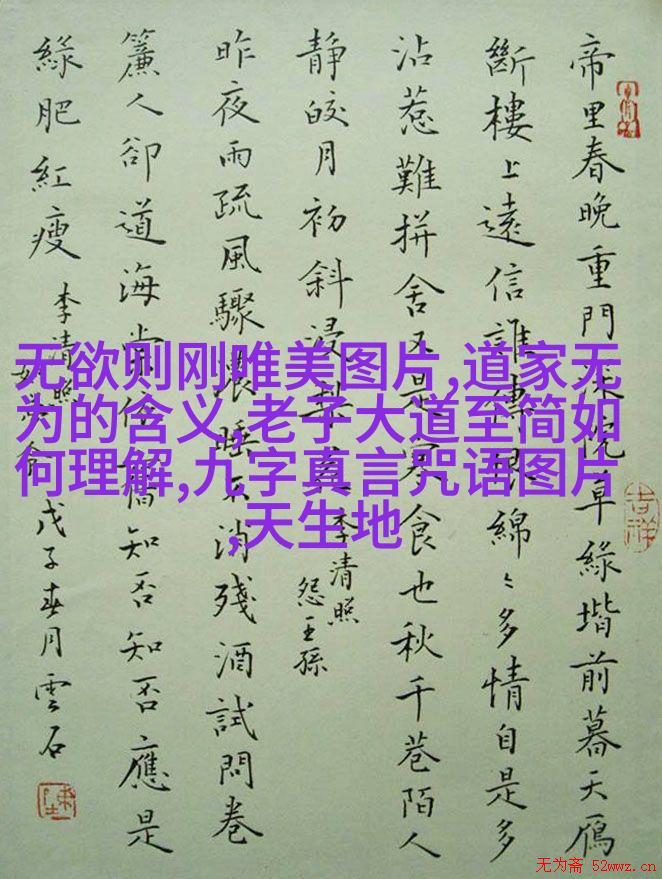 帝里春晚重門深院草緑堦前暮天鴈
斷樓上遠信誰傳恨綿〻多情自是多
沾惹難拼舍又是寒食也秋千巷陌人
静皎月初斜浸梨
李清照
怨王孫
昨夜雨疏風驟濃睡不消殘酒試問卷
簾人卻道海棠依舊知否知否應是
緑肥紅瘦
李清照
戊子春月雲石
无欲则刚唯美图片,道家无
为的含义,老子大道至简如
何理解,九字真言咒语图片
,天生地
无为斋 52wwz.cn